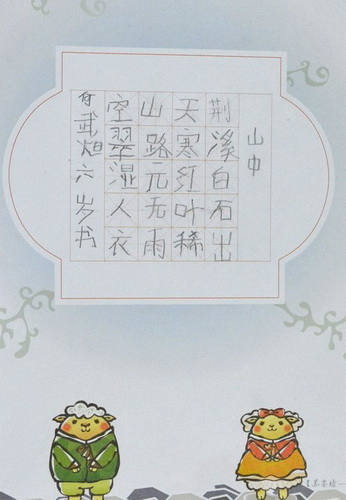 山中
荆溪白石出
天寒红叶稀
山路元无雨
空翠湿人衣
武炟六岁书